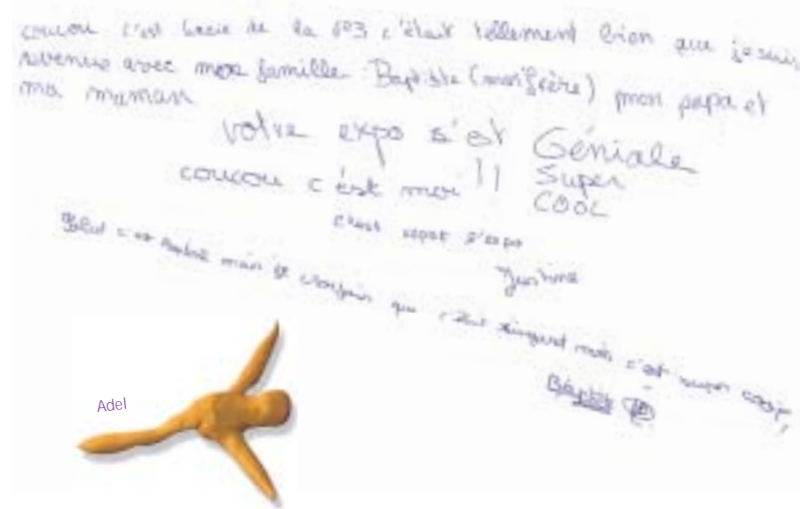 coucou c'est Lucie de la 603 c'était tellement bien que je suis
revenue avec ma famille Baptiste (mon frère) mon papa et
ma maman
votre expo s'est Géniale
coucou c'est moi !! Super
COOL
c'est l'expo
Justine
c'est mais je que c'était mais c'est super cool,
Baptiste
Adel